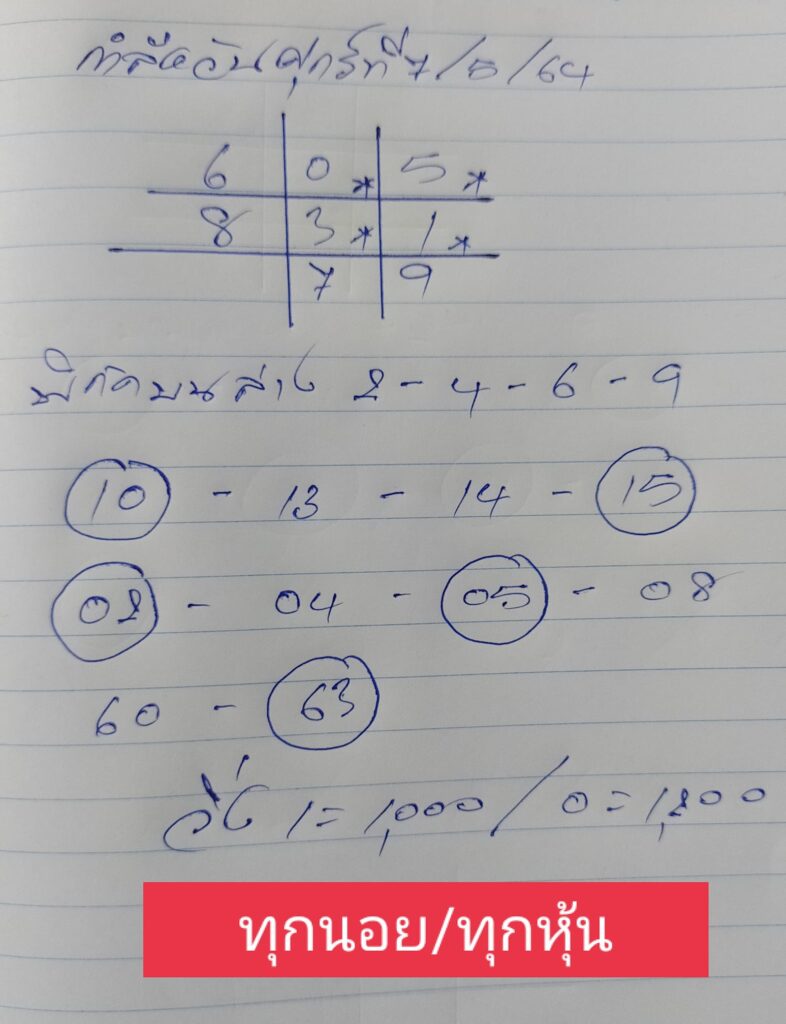 วันศุกร์ที่ 7/5/64
6 0* 5*
8 3* 1*
7 9
พิกัดบนล่าง 2 - 4 - 6 - 9
10 - 13 - 14 - 15
02 - 04 - 05 - 08
60 - 63
วิ่ง 1 = 1,000 / 0 = 1,200
ทุกนอย/ทุกหุ้น